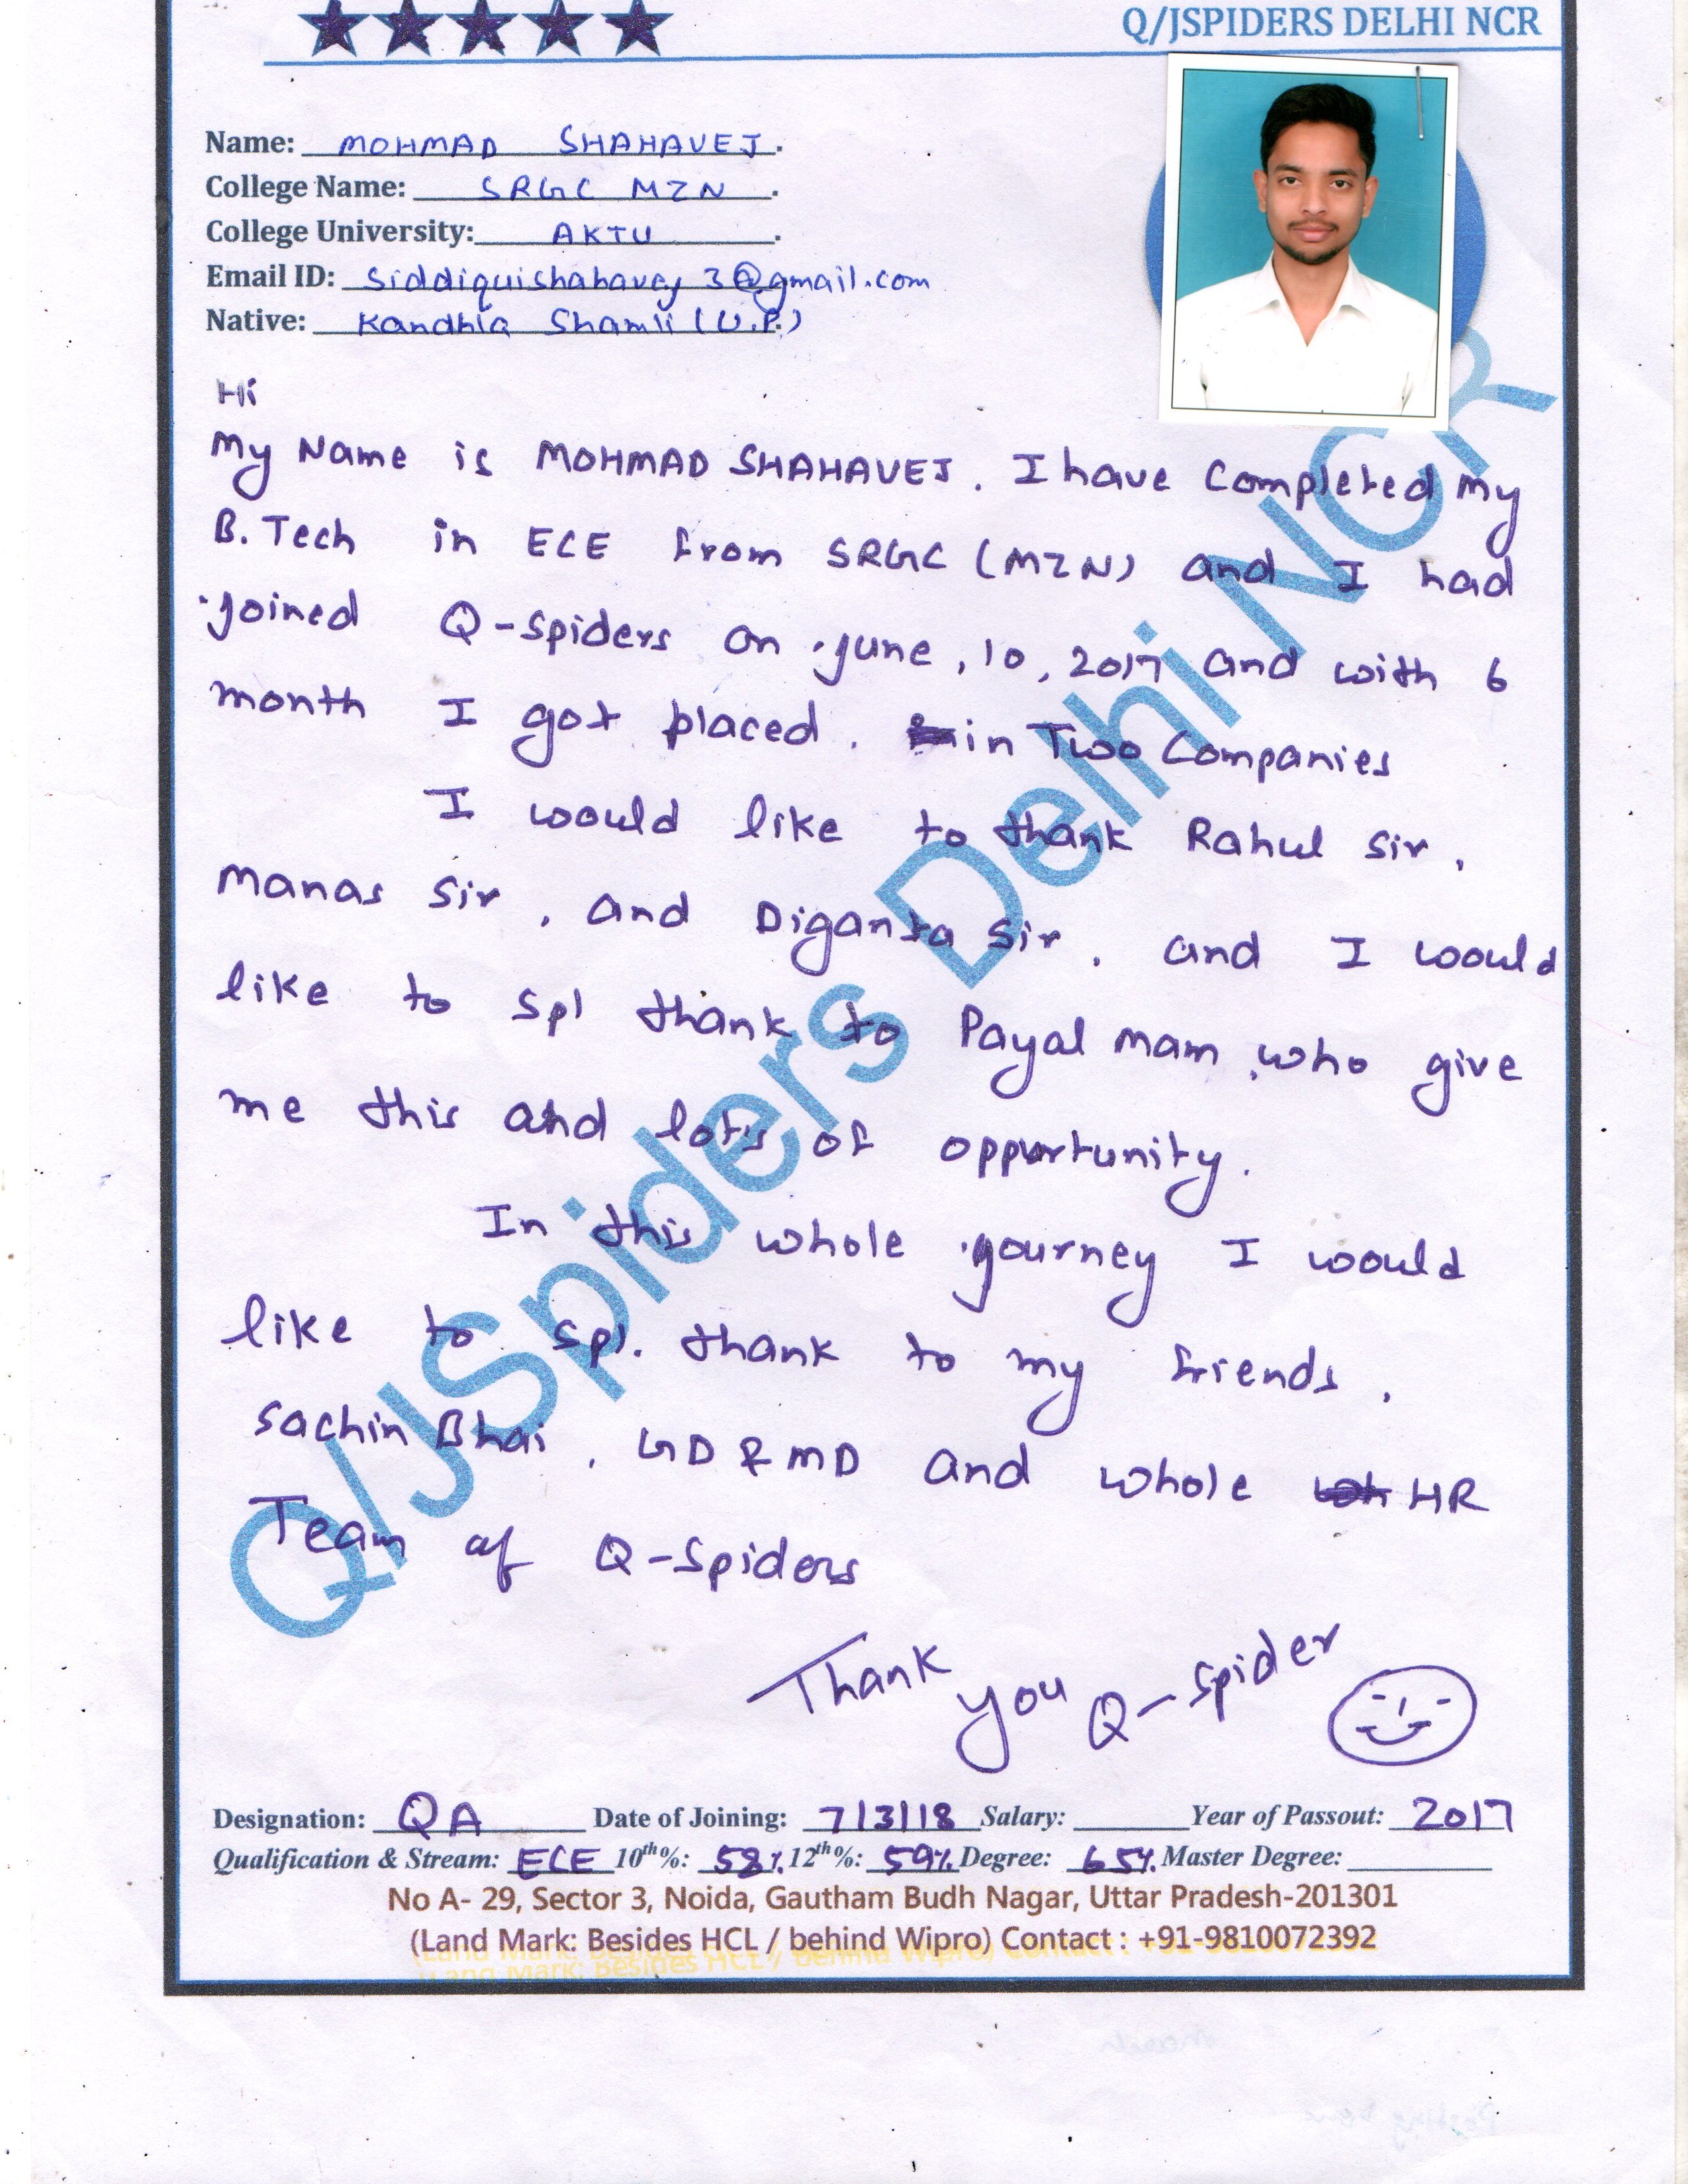 Q/JSPIDERS DELHI NCR
Name: MOHMAD SHAHAVEJ.
College Name: SRGC MZN.
College University: AKTU.
Email ID: siddiquishahavej3@gmail.com
Native: Kandhla Shamli (U.P.)
Hi
My Name is MOHMAD SHAHAVEJ. I have Completed my
B.Tech in ECE from SRGC (MZN) and I had
joined Q-Spiders on june, 10, 2017 and with 6
month I got placed. in Two Companies
I would like to thank Rahul Sir,
Manas Sir, and Diganta Sir, and I would
like to spl thank to Payal mam, who give
me this and lot's of opportunity.
In this whole journey I would
like to spl. thank to my friends,
Sachin Bhai, GD & MD and whole HR
Team of Q-Spiders
Thank you Q-Spider
Q/JSpiders Delhi NCR
Designation: QA Date of Joining: 7/3/18 Salary: Year of Passout: 2017
Qualification & Stream: ECE 10th%: 58% 12th%: 59% Degree: 65% Master Degree:
No A- 29, Sector 3, Noida, Gautham Budh Nagar, Uttar Pradesh-201301
(Land Mark: Besides HCL / behind Wipro) Contact : +91-9810072392